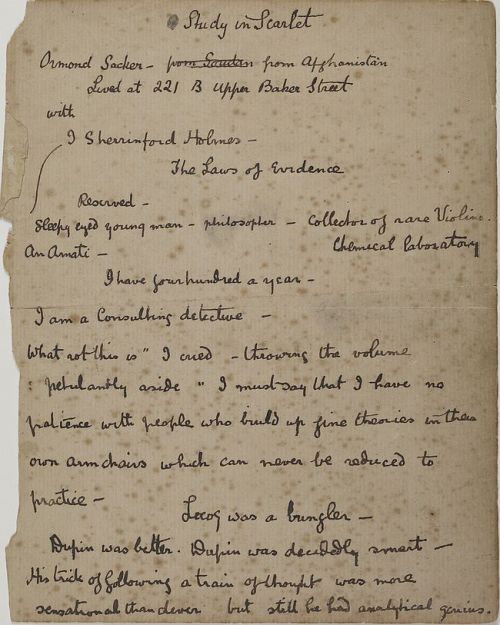 Study in Scarlet
Ormond Sacker – from Soudan from Afghanistan
Lived at 221 B Upper Baker Street
with
I Sherrinford Holmes –
The Laws of Evidence
Reserved –
Sleepy eyed young man – philosopher – Collector of rare Violins.
An Amati –
Chemical laboratory
I have four hundred a year –
I am a Consulting detective –
What rot this is" I cried – throwing the volume
: petulantly aside " I must say that I have no
patience with people who build up fine theories in their
own armchairs which can never be reduced to
practice –
Lecoq was a bungler –
Dupin was better. Dupin was decidedly smart –
His trick of following a train of thought was more
sensational than clever but still he had analytical genius.